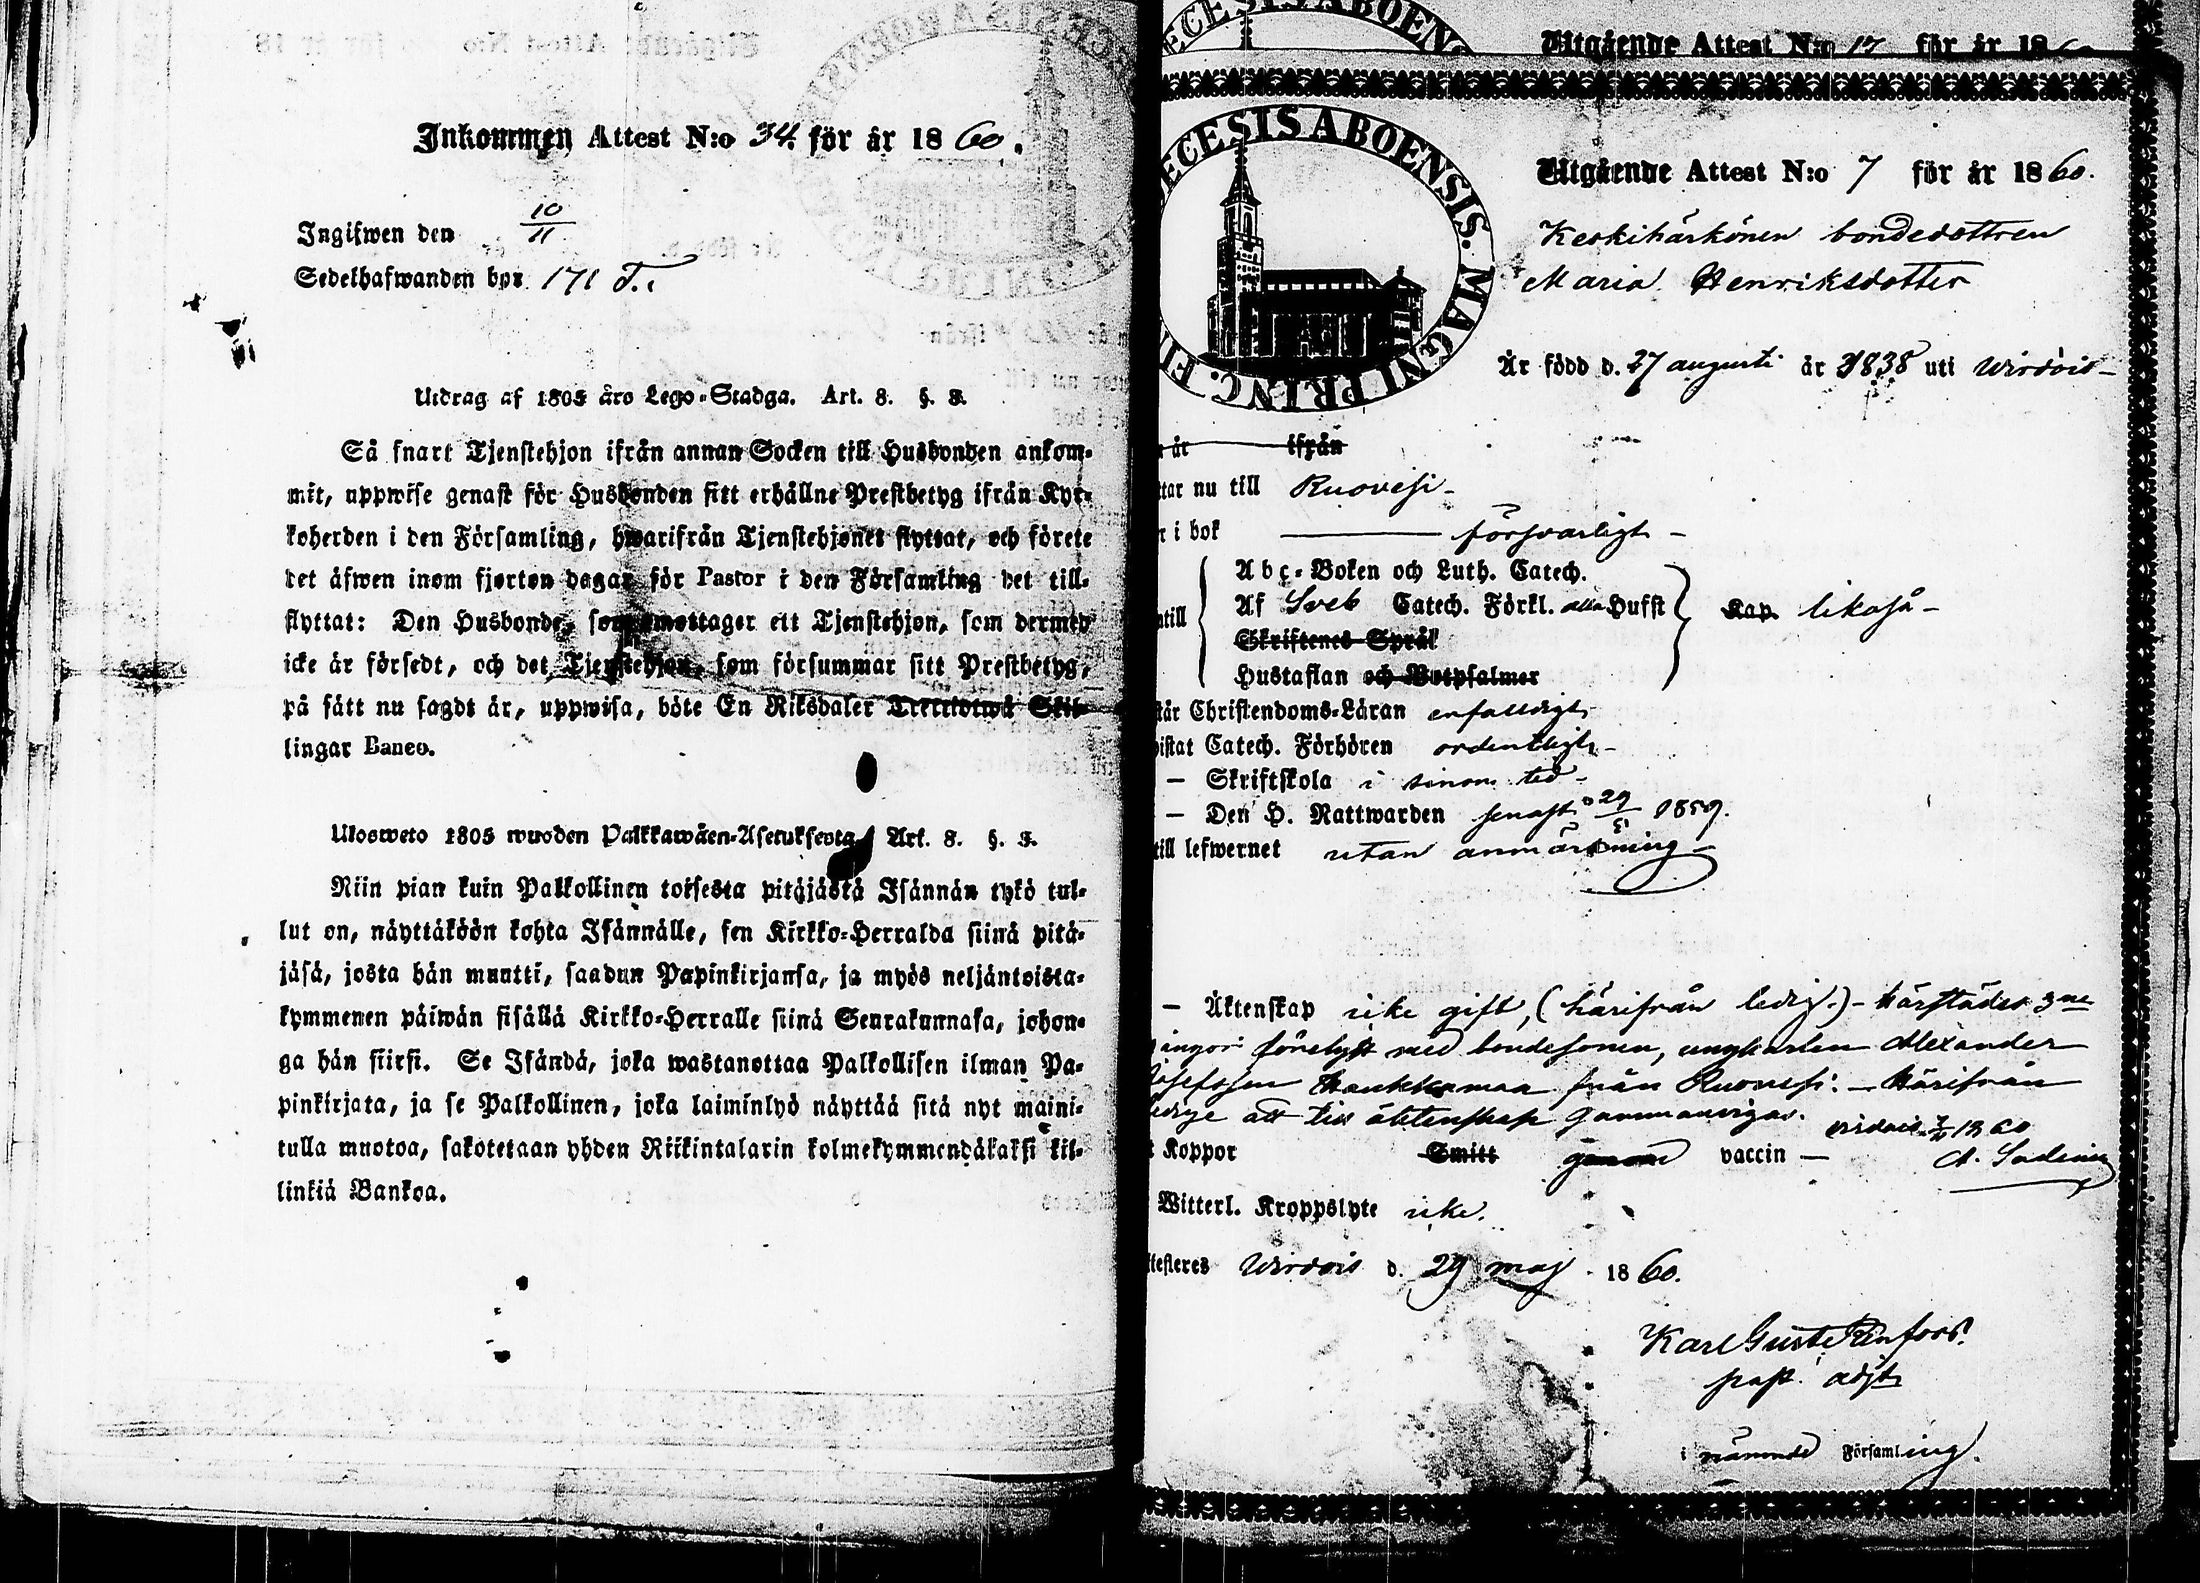 Inkommen Attest N:o 34. för år 1860.
Ingifwen den 10/11.
Sedelhafwanden bor 171 T.
Utdrag af 1805 års Lego-Stadga. Art. 8. §. 3.
Så snart Tjenstehjon ifrån annan Socken till Husbonden ankom-
mit, uppwise genast för Husbonden sitt erhållne Prestbetyg ifrån Kyr-
koherden i den Församling, hwarifrån Tjenstehjonet flyttat, och förete
det äfwen inom fjorton dagar för Pastor i den Församling det till-
flyttat: Den Husbonde, som emottager ett Tjenstehjon, som dermed
icke är försedt, och det Tjenstehjon, som försummar sitt Prestbetyg,
på sätt nu sagdt är, uppwisa, böte En Riksdaler Trettiotwå Skil-
lingar Banco.
Ulosweto 1805 wuoden Palkkawäen-Asetuksesta Art. 8. §. 3.
Niin pian kuin Palkollinen toisesta pitäjästä Isännän tykö tul-
lut on, näyttäköön kohta Isännälle, sen Kirkko-Herralda siinä pitä-
jäsä, josta hän muutti, saadun Papinkirjansa, ja myös neljäntoista-
kymmenen päiwän sisällä Kirkko-Herralle siinä Seurakunnasa, johon-
ga hän siirsi. Se Isändä, joka wastanottaa Palkollisen ilman Pa-
pinkirjata, ja se Palkollinen, joka laiminlyö näyttää sitä nyt maini-
tulla muotoa, sakotetaan yhden Riikintalarin kolmekymmendäkaksi kil-
linkiä Bankoa.
Utgående Attest N:o 17 för år 186
ECESIS ABOENS
DECESIS ABOENSIS. MAGNI PRINC. FI
Utgående Attest N:o 7 för år 1860.
Keskihärkönen bondedottren
Maria Henriksdotter
Är född d. 27 augusti år 1838 uti Wirdois-
år ifrån
tar nu till Ruovesi-
r i bok försvarligt -
Abc-Boken och Luth. Catech.
ntill Af Sveb Catech. Förkl. alla Hufst Kap. likaså-
Skriftenes Språk
Hustaflan och Botpsalmer
står Christendoms-Läran enfaldigt,
wistat Catech. Förhören ordentligt,-
- Skriftskola i sinom tid-
- Den H. Nattwarden senast d 29/5 1859.
till lefwernet utan anmärkning-
- Äktenskap icke gift, (härifrån ledig.) - härstädes 3ne
gångor förelyst med bondesonen, ungkarlen Alexander
Josefsson Haukkamaa från Ruovesi: - härifrån
ledige att till äktenskap sammanvigas. Virdois 1860
t Koppor Smitt genom vaccin -
Witterl. Kroppslyte icke.
ttesteres Wirdois d. 29 maj 1860.
past. adjt
i nämnde Församling.